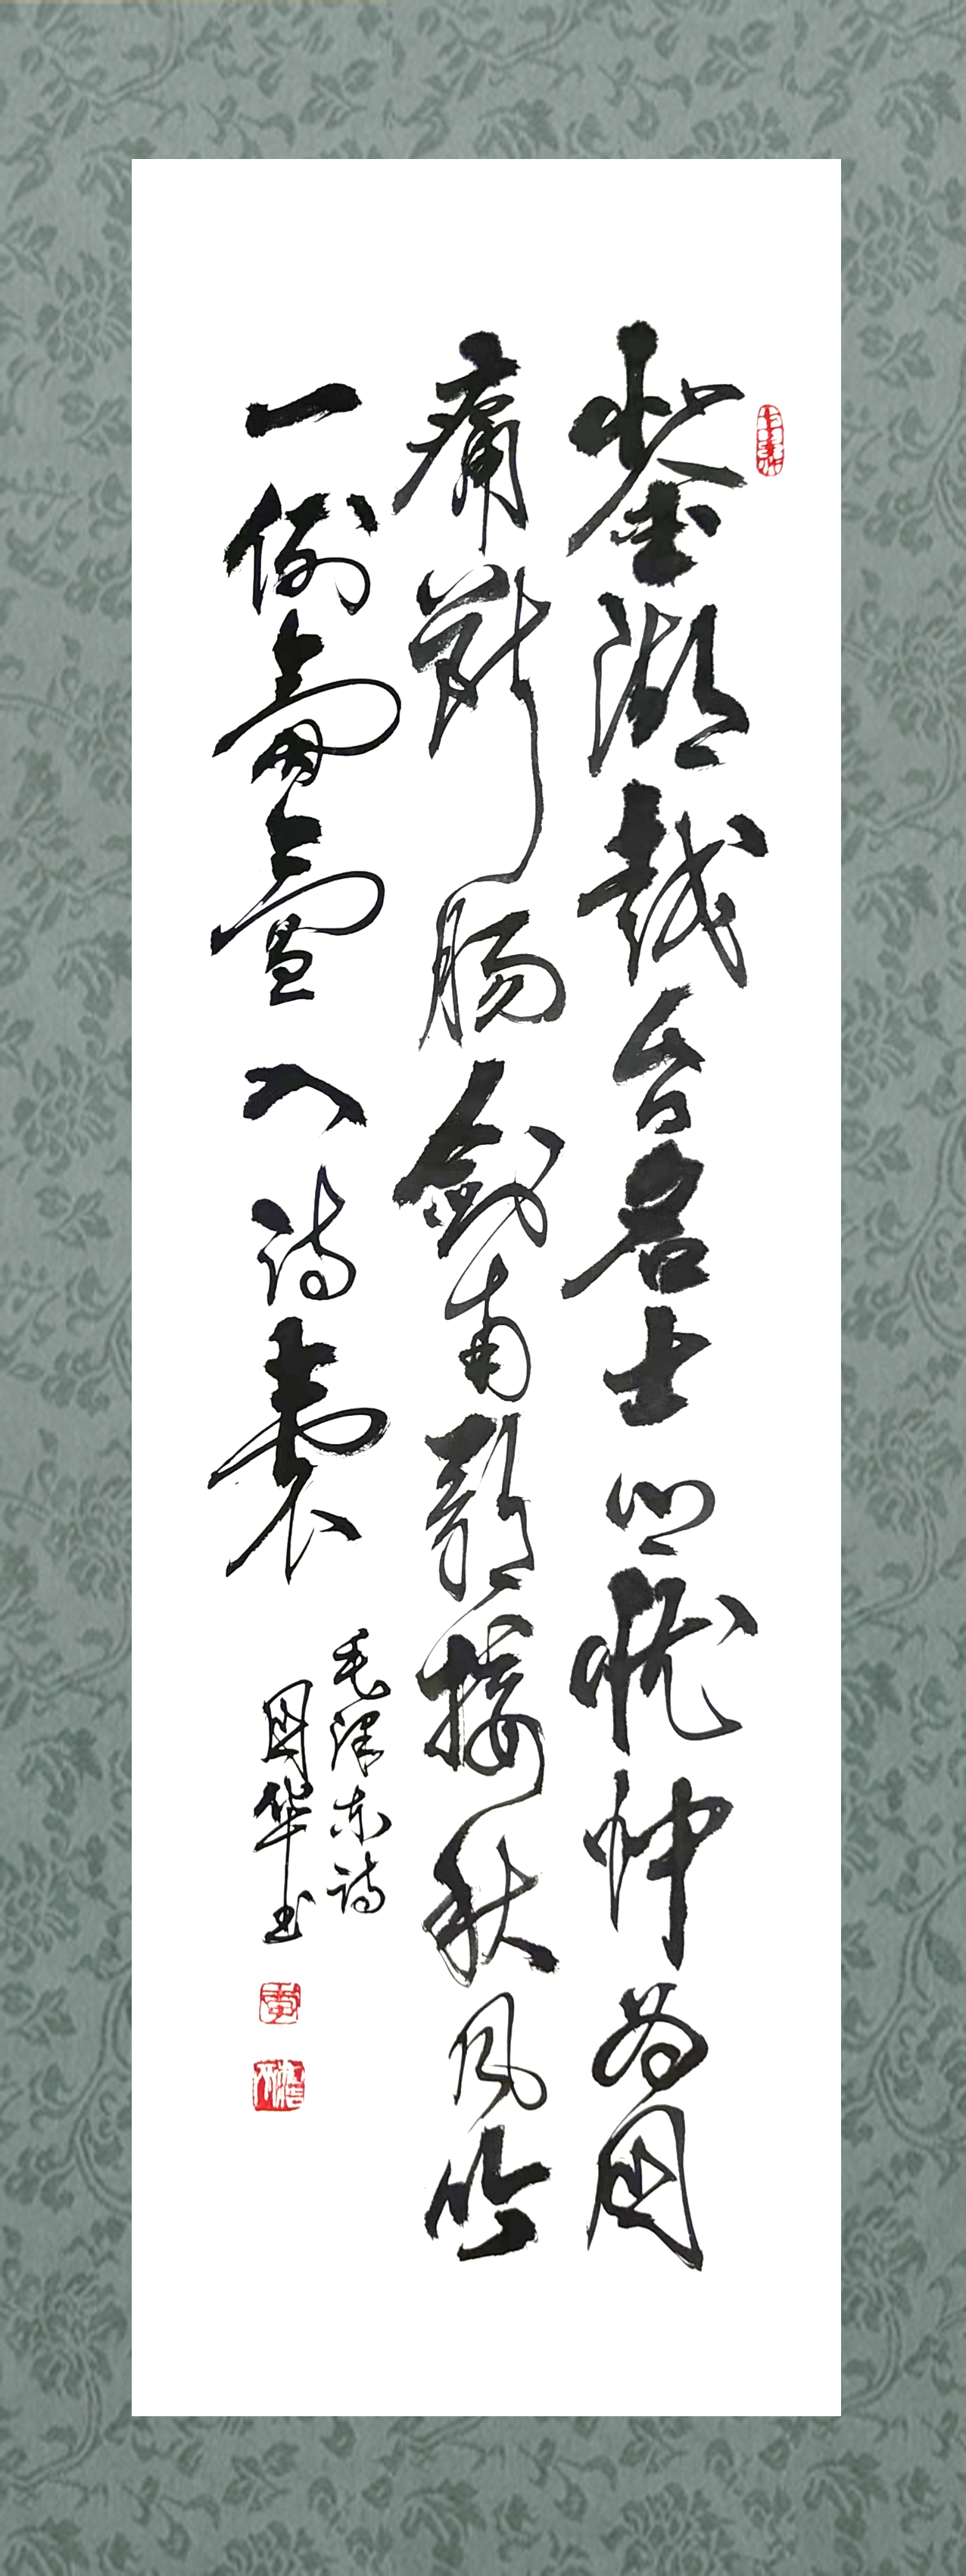 鉴湖越台名士乡忧忡为国
痛断肠剑南歌接秋风吟
一例氤氲入诗囊
毛泽东诗
国华书